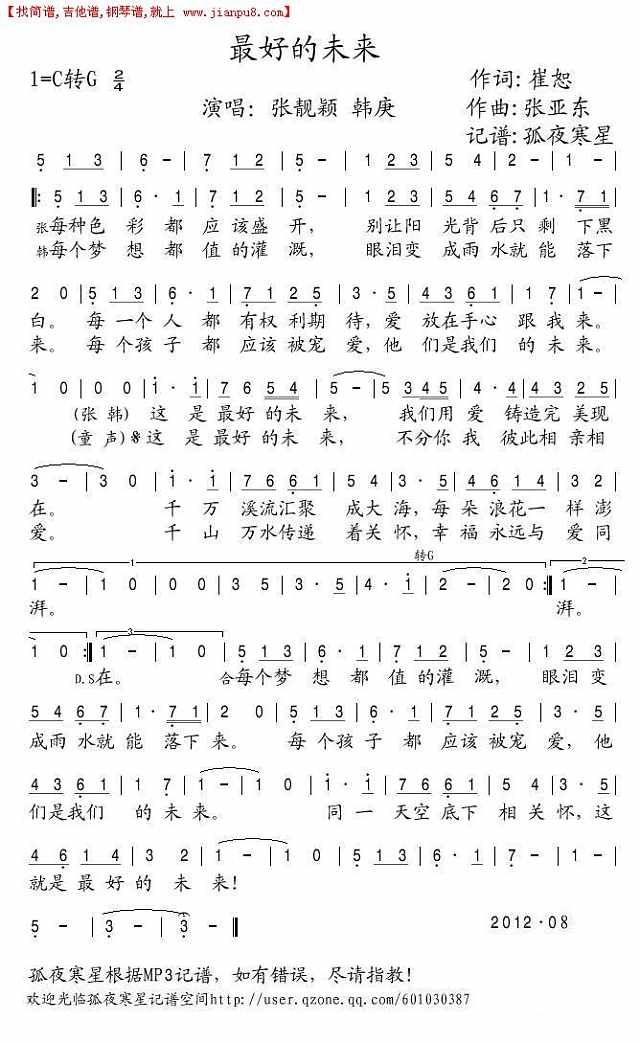 【找简谱,吉他谱,钢琴谱,就上 www.jianpu8.com】
最好的未来
1=C转G 2/4
作词: 崔恕
演唱: 张靓颖 韩庚
作曲: 张亚东
记谱: 孤夜寒星
5 1 3 | 6 - | 7 1 2 | 5 1 3 | 6 - | 7 1 2 | 5 4 | 2 - |
‖: 5 1 3 | 6 · 1 | 7 1 2 | 3 - | 5 1 3 | 5 4 6 7 | 1 · 7 1 |
张每种色 彩都 应该盛 开, 别让阳 光背后只 剩 下黑
韩每个梦 想都 值的灌 溉, 眼泪变 成雨水就 能 落下
2 0 | 5 1 3 | 6 · 1 | 7 1 2 5 | 3 · 5 | 4 3 6 1 | 1 7 | 1 - |
白。 每一个 人 都 有权利期 待, 爱 放在手心 跟我 来。
来。 每个孩 子 都 应该被宠 爱, 他 们是我们 的未 来。
1 0 | 0 0 | 1 · 1 | 7 6 5 4 | 5 - | 5 3 4 5 | 6 · 4 | 4 · 1 |
(张 韩) 这 是 最好的未 来, 我们用 爱 铸造完 美现
(童 声)𝄋这 是 最好的未 来, 不分你 我 彼此相 亲相
3 - | 3 0 | 1 · 1 | 7 6 6 1 | 5 · 3 | 4 4 6 1 | 4 · 6 | 3 2 |
在。 千 万 溪流汇聚 成大 海, 每 朵 浪花一 样 澎
爱。 千 山 万水传递 着关 怀, 幸 福 永远与 爱 同
1
转G
2
1 - | 1 0 | 0 0 | 3 5 | 3 · 5 | 4 · 1 | 2 - | 2 0 :‖ 1 - |
湃。 湃。
3
1 0 :‖ 1 - | 1 0 | 5 1 3 | 6 · 1 | 7 1 2 | 5 - | 5 1 3 |
D.S在。 合每个梦 想都 值的灌 溉, 眼泪变
5 4 6 7 | 1 · 7 1 | 2 0 | 5 1 3 | 6 · 1 | 7 1 2 5 | 3 · 5 |
成雨水就 能 落下 来。 每个孩 子 都 应该被宠 爱, 他
4 3 6 1 | 1 7 | 1 - | 1 0 | 3 · 1 | 7 6 6 1 | 5 4 | 5 · 5 |
们是我们 的未 来。 同 一 天空底下 相关 怀, 这
4 6 1 | 3 2 | 1 - | 1 0 | 5 1 3 | 6 · 1 | 7 - | 1 - |
就是最 好的 未 来!
5 - | 3 - | 3 - ‖
2012·08
孤夜寒星根据MP3记谱, 如有错误, 尽请指教!
欢迎光临孤夜寒星记谱空间http://user.qzone.qq.com/601030387